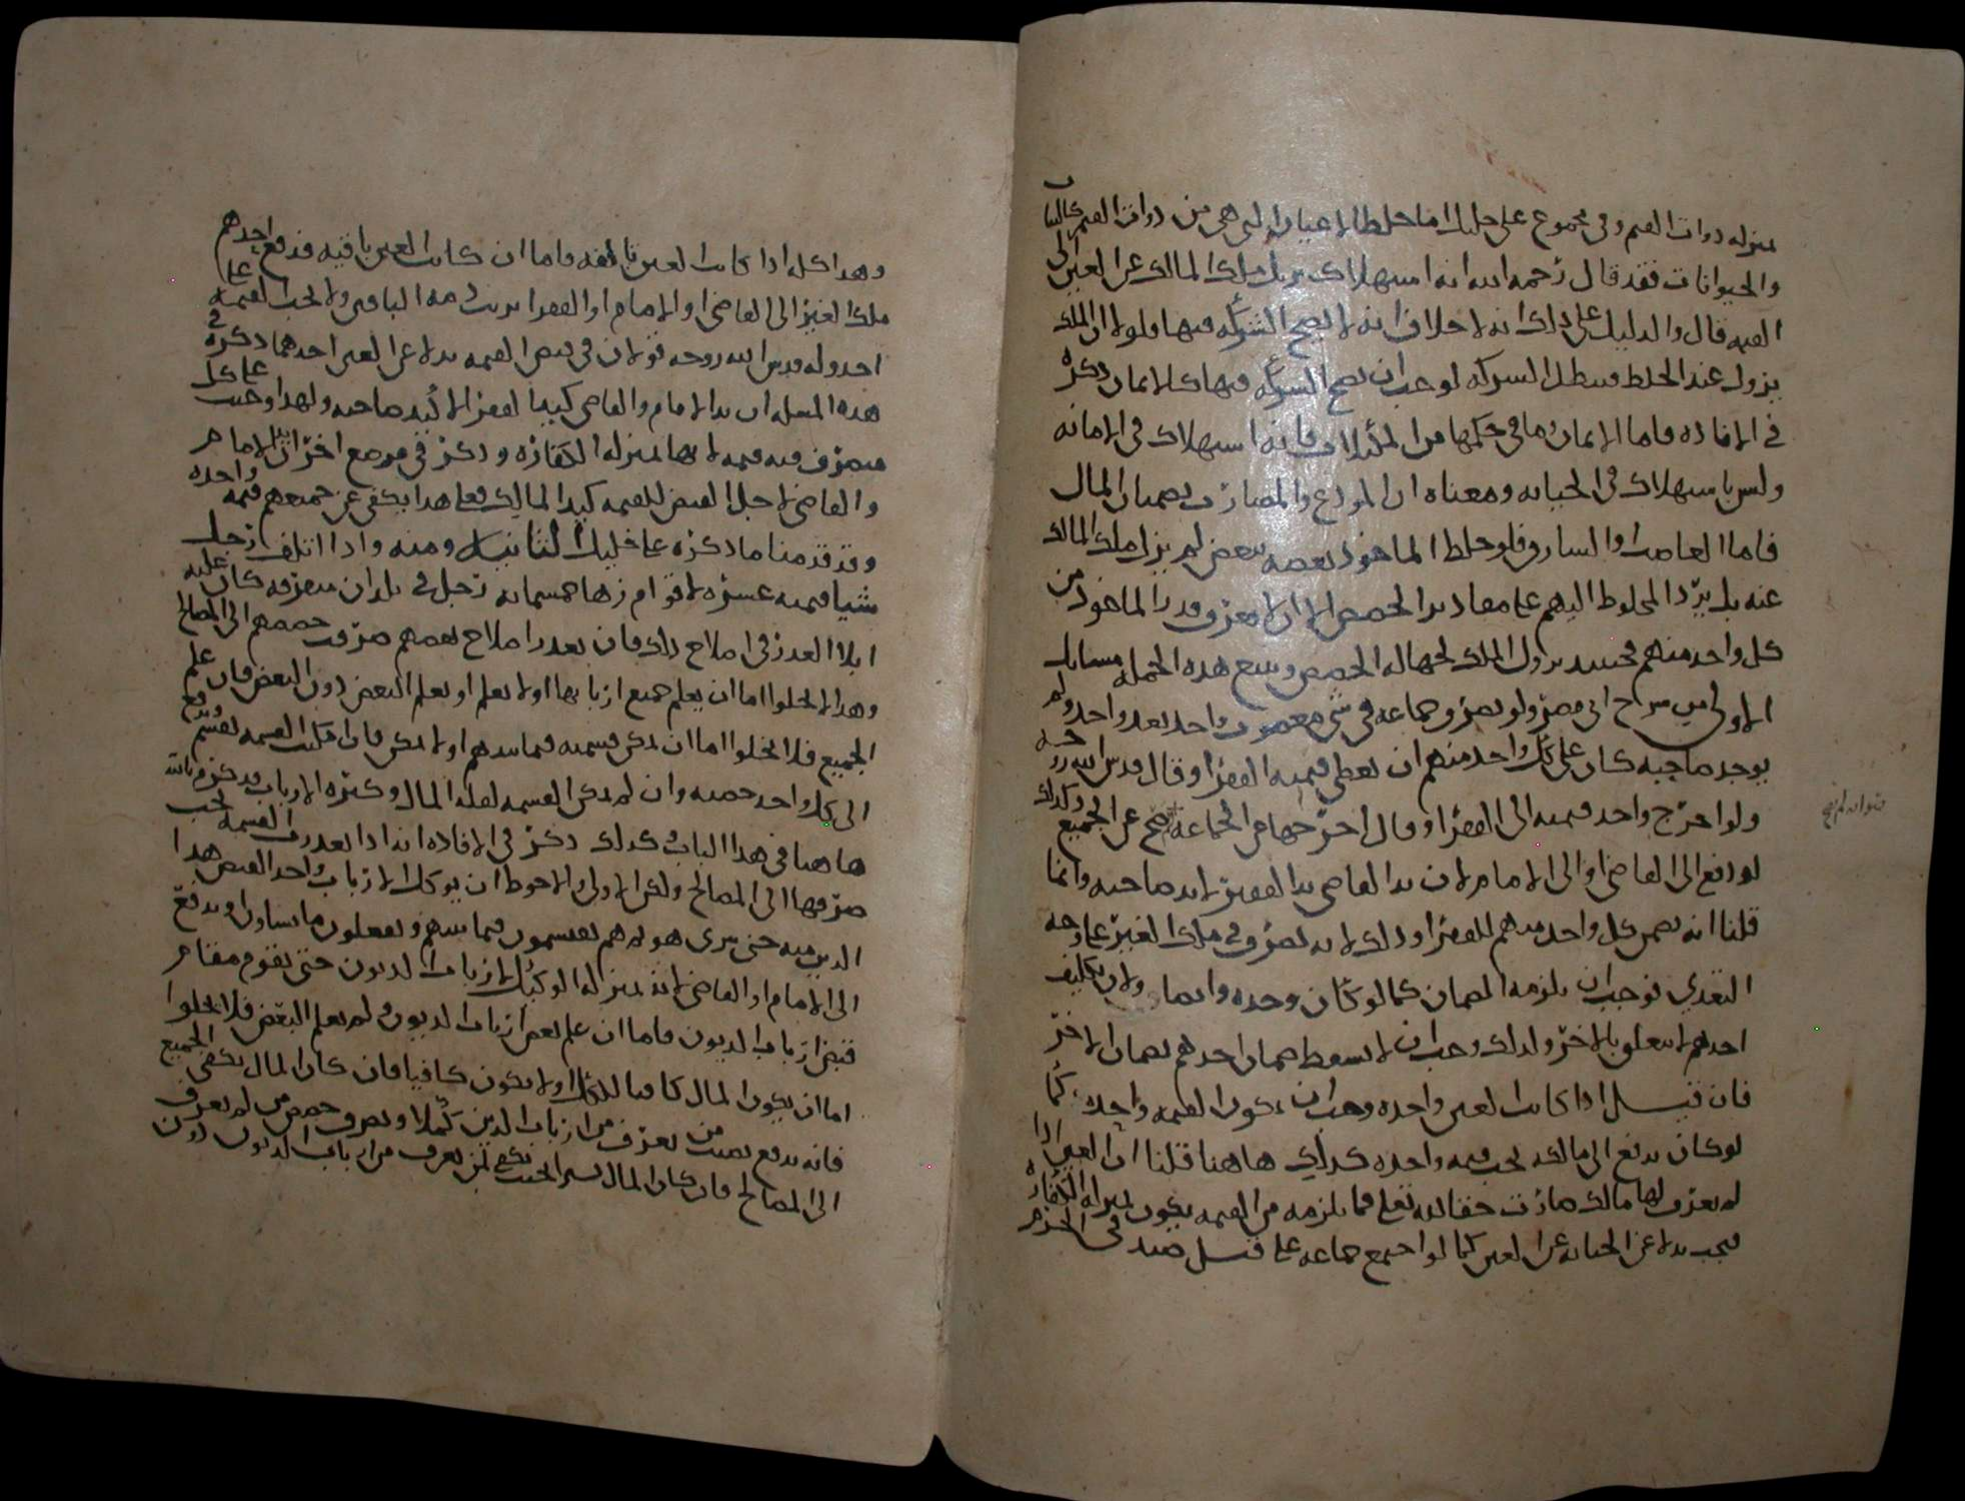 بمنزله دوات القيم وفي مجموع علي خليل اما خلط الاعيان التي هي من دوات القيم كالثياب
والحيوانات فقد قال رحمه الله انه استهلاك يزيل ملك المالك عن العين الى
القيمه قال والدليل على ذلك انه لا خلاف انه لا يصح الشركه فيها فلولا ان الملك
يزول عند الخلط فيبطل الشركه لوجب ان تصح الشركه فيها كالاثمان ذكره
في الافاده فاما الاثمان وما في حكمها من المثليات فانه استهلاك في الامانه
وليس باستهلاك في الخيانه ومعناه ان المودع والمضارب يضمنان المال
فاما الغاصب والسارق فلو خلط الماخوذ بعضه ببعض لم يزل ملك المالك
عنه بل يرد المخلوط اليهم على مقادير الحصص الا ان لا يعرف قدر الماخوذ من
كل واحد منهم فحينئذ يزول الملك لجهاله الحصص ويتبع هذه الجمله مسايل
الاولى من سراج ابي مضر ولو تصرف جماعه في شي مغصوب واحد بعد واحد ولم
يوجد صاحبه كان على كل واحد منهم ان يعطي قيمته الفقرا وقال قدس الله روحه
ولو اخرج واحد قيمته الى الفقرا وقال اخرجها عن الجماعه صح عن الجميع وكذلك
لو دفع الى القاضي او الى الامام لان يد القاضي يد الفقير لا يد صاحبه وانما
قلنا انه يضمن كل واحد منهم للفقرا وذلك لانه تصرف في ملك الغير على وجه
التعدي فوجب ان يلزمه الضمان كما لو كان وحده وايضا ولان تكليف
احدهم لا يتعلق بالاخر ولذلك وجب ان لا يسقط ضمان احدهم بضمان الاخر
فان قيل اذا كانت العين واحده وجب ان تكون القيمه واحده كما
لو كان يدفع الى مالكه يجب قيمه واحده كذلك هاهنا قلنا ان العين اذا
لم يعرف لها مالك صارت حقا لله تعلى فما يلزمه من القيمه يكون بمنزله الكفاره
فيجب بدلا عن الجنايه عن العين كما لو اجتمع جماعه على قتل صيد في الحرم
وهذا كله اذا كانت العين تالفه واما ان كانت العين باقيه فدفع احدهم
ملك الغير الى القاضي او الامام او الفقرا بريت ذمه الباقين ولا تجب القيمه على
احد وله قدس الله روحه قولان في قبض القيمه بدلا عن العين احدهما ذكره في
هذه المسله ان يد الامام والقاضي كيد الفقير لا كيد صاحبه ولهذا وجبت على كل
متصرف فيه قيمه لانها بمنزله الكفاره وذكر في موضع اخر ان يد الامام
والقاضي لاجل القبض للقيمه كيد المالك فعلى هذا يكفي عن جميعهم قيمه واحده
وقد قدمنا ما ذكره على خليل الثانيه ومنه واذا اتلف رجل
شيا قيمته عشره لاقوام زها خمسمايه رجل في بلدان متفرقه كان عليه
ابلا العذر في اصلاح ذلك فان تعذر اصلاح بعضهم صرفت حصصهم الى المصالح
وهذا لا يخلوا اما ان يعلم جميع اربابها او لا يعلم او يعلم البعض دون البعض فان علم
الجميع فلا يخلوا اما ان يمكن قسمته فيما بينهم او لا يمكن فان امكنت القسمه تقسم ويدفع
الى كل واحد حصته وان لم يمكن القسمه لقله المال وكثره الارباب فذكر
هاهنا في هذا الباب كذلك ذكر في الافاده انه اذا تعذرت القسمه يجب
صرفها الى المصالح ولكن الاولى والاحوط ان يوكل الارباب واحدا لقبض هذا
الدين منه حتى يبرى هو ثم هم يقتسمون فيما بينهم ويفعلون ما يشاون او يدفع
الى الامام او القاضي لانه بمنزله الوكيل لارباب الديون حتى يقوم مقام
قبض ارباب الديون فاما ان علم بعض ارباب الديون ولم يعلم البعض فلا يخلوا
اما ان يكون المال كافيا للكل او لا يكون كافيا فان كان المال يكفي الجميع
فانه يدفع نصيب من يعرف من ارباب الدين كملا ويصرف حصص من لم يعرف
الى المصالح فان كان المال يسيرا بحيث يكفي لمن يعرف من ارباب الديون دون